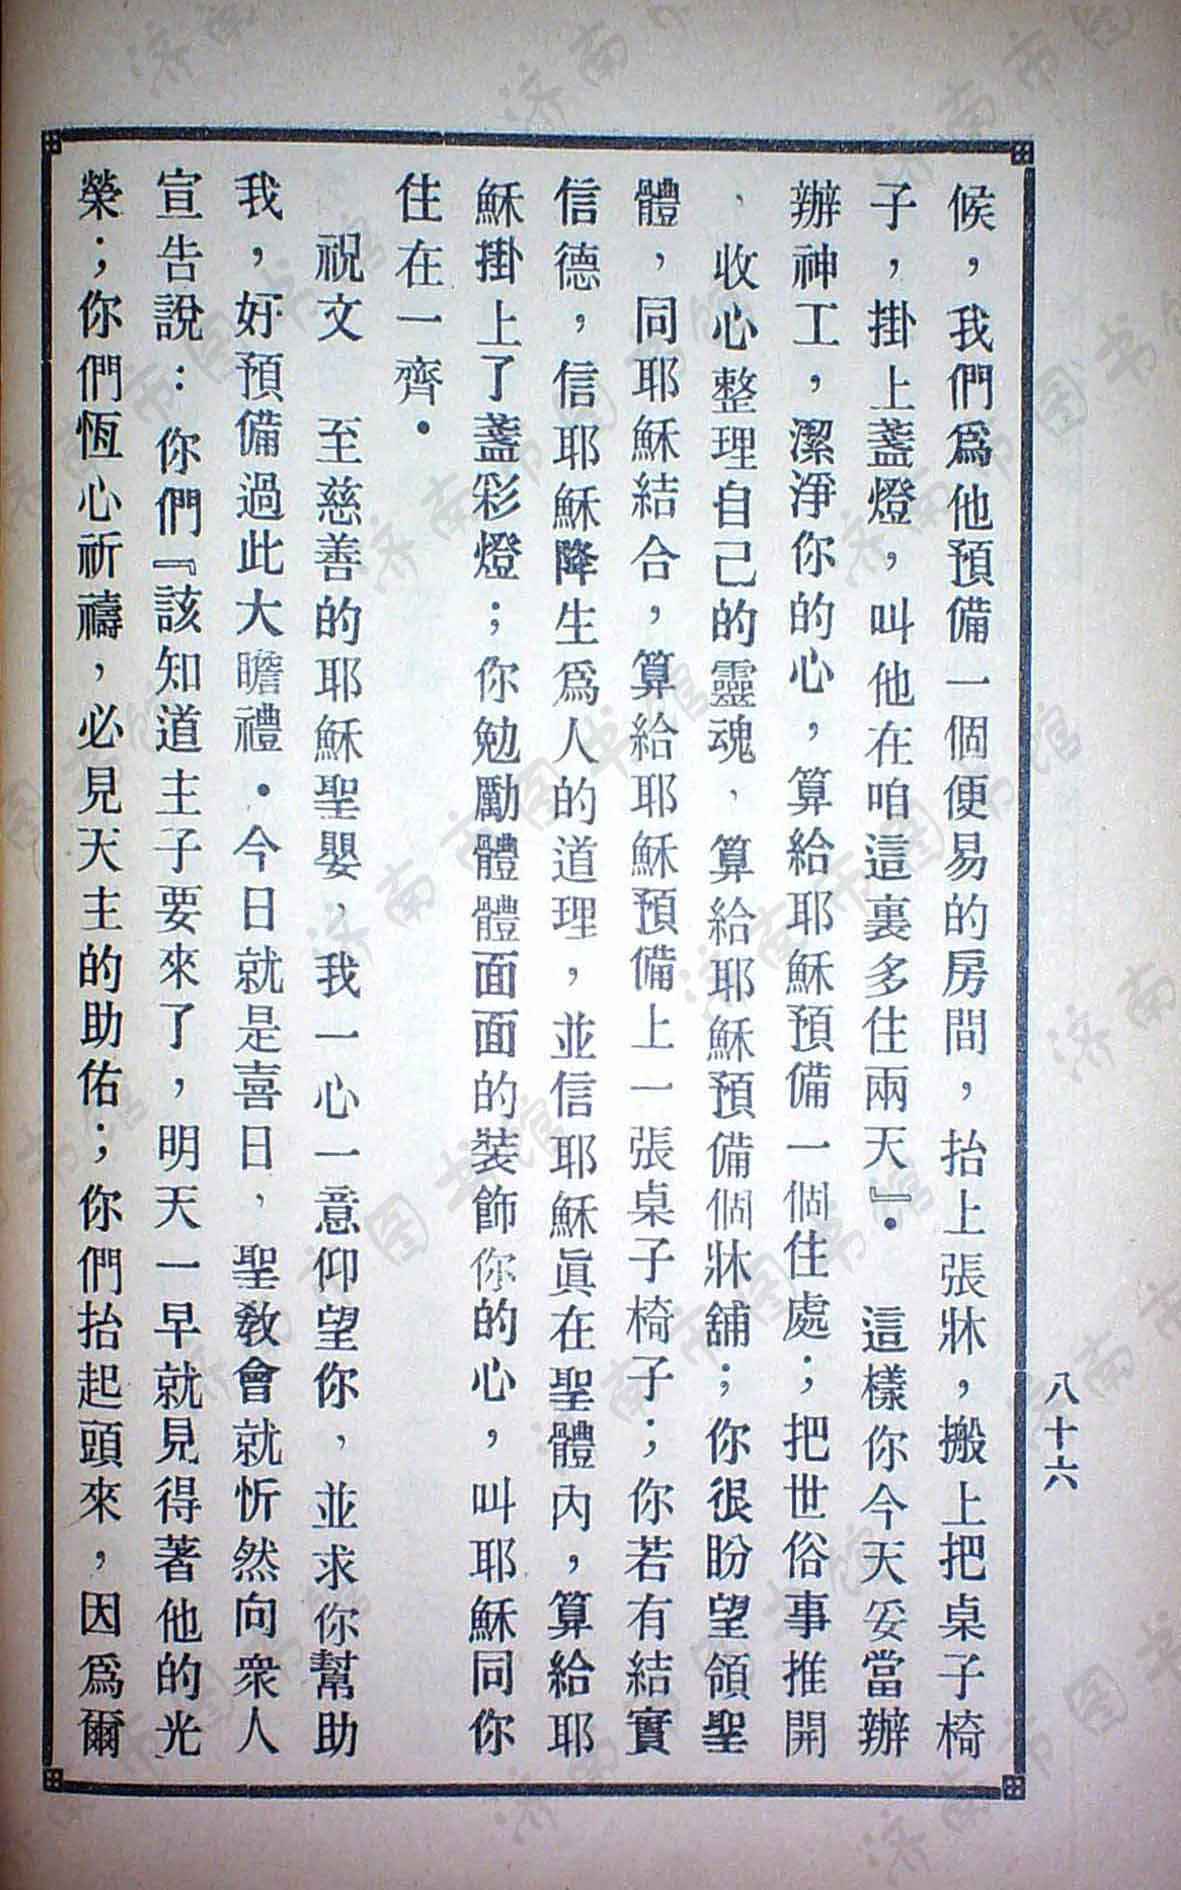 八十六
候，我們爲他預備一個便易的房間，抬上張牀，搬上把桌子椅
子，掛上盞燈，叫他在咱這裏多住兩天』．　這樣你今天妥當辦
辦神工，潔淨你的心，算給耶穌預備一個住處；把世俗事推開
，收心整理自己的靈魂，算給耶穌預備個牀舖；你很盼望領聖
體，同耶穌結合，算給耶穌預備上一張桌子椅子；你若有結實
信德，信耶穌降生爲人的道理，並信耶穌眞在聖體內，算給耶
穌掛上了盞彩燈；你勉勵體體面面的裝飾你的心，叫耶穌同你
住在一齊．
祝文　至慈善的耶穌聖嬰，我一心一意仰望你，並求你幫助
我，好預備過此大瞻禮．今日就是喜日，聖教會就忻然向衆人
宣告說：你們『該知道主子要來了，明天一早就見得著他的光
榮；你們恆心祈禱，必見天主的助佑；你們抬起頭來，因爲爾
济南市图书馆